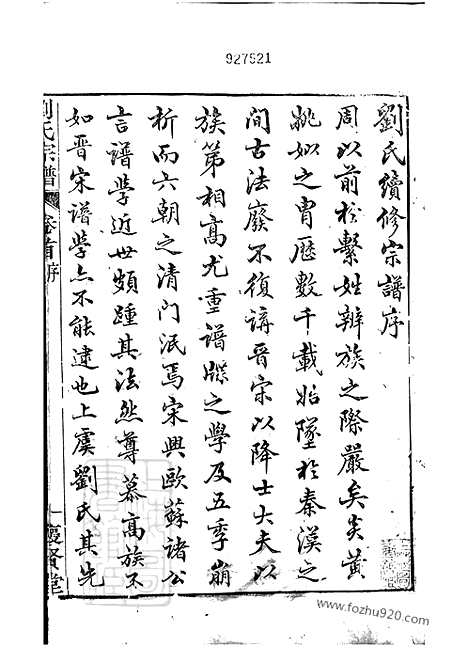 927521
劉氏續修宗譜序
周以前於繫姓辨族之際嚴矣炎黃
姚姒之胄歷數千載始墜於秦漢之
間古法廢不復講晉宋以降士大夫以
族第相高尤重譜牒之學及五季崩
析而六朝之清門泯焉宋興歐蘇諸公
言譜學近世頗踵其法然尊慕高族不
如晉宋譜學亦不能逮也上虞劉氏其先
劉氏宗譜
卷首
序
一
賢堂
www.fozhu920.com